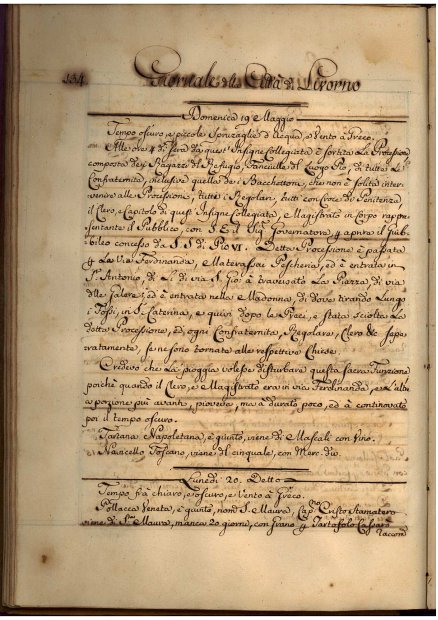 134
Giornale della Città di Livorno
Domenica 19 Maggio
Tempo oscuro, e piccole spruzaglie d'acqua, e Vento à Greco.
Alle ore 4 di sera da quest'Insigne Collegiata è sortita La Processione
composta de i Ragazzi del Refugio, Fanciulle del Luogo Pio, di tutte Le
Confraternita, inclusive quella de i Bacchettoni, che non è solita inter-
venire alle Processione, tutti i Regolari, tutti con Croce di Penitenza
il Clero, e Capitolo di quest'Insigne Collegiata, e Magistrato in Corpo rappre-
sentante il Pubblico, con S. E. il Sig. Governatore, q aprire il Giub-
bileo concesso da S. S. di Pio VI. Detta Processione è passata
q La Via Ferdinanda, e Materassai Pescheria, ed è entrata in
S. Antonio, di Lì di via S. Gio: à traversato La Piazza, di via
delle Galere, ed è entrata nella Madonna, di dove tirando Lungo
i Fossi, in S. Caterina, e quivi dopo Le Preci, è stata sciolta La
detta Processione, ed ogni Confraternita, Regolare, e Clero &c sepa-
ratamente, se ne sono tornate alle respettive Chiese.
Credevo che La pioggia volesse disturbare questa sacra Funzione
poichè quando il Clero, e Magistrato era in via Ferdinanda, e
porzione più avanti, pioveva, ma à durato poco, ed à continovato
poi il tempo oscuro.
Tartana Napoletana, è giunto, viene di Mascali con vino.
Navicello Toscano, viene del Cinquale, con Merc. div.
Lunedì 20. Detto
Tempo frà chiaro, e oscuro, e Vento à Greco.
Pollacca Veneta, è giunto, nom. S. Maura, Cap.no Cristo Stamatero
viene di S. Maura, manca 20 giorni, con Grano q Bartolo
raccom.